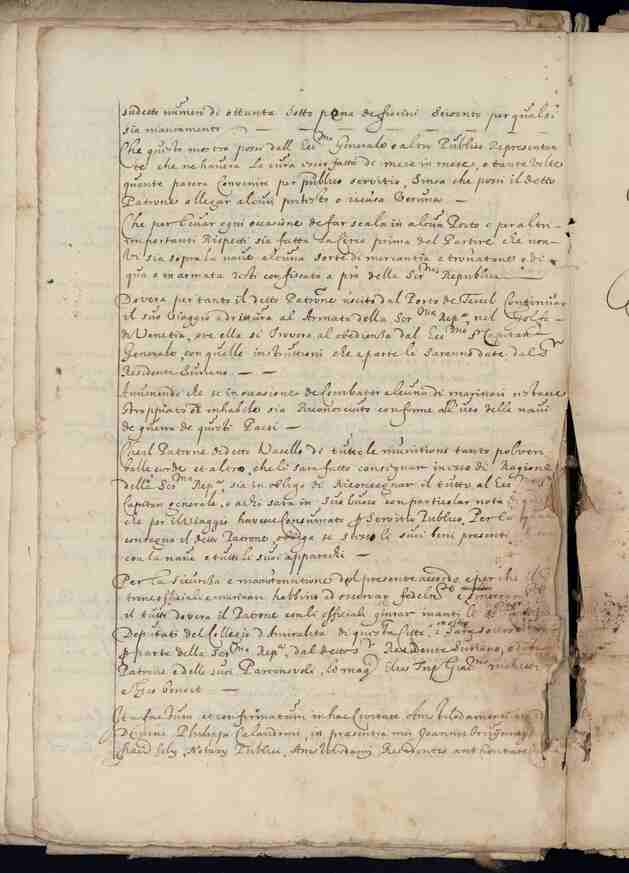 sudetto numero di ottanta sotto pena de fiorini seicento per qualsi
sia mancamento
Che questa mostra possi dall Ecc.mo Generale o altro Publico Representan
te che ne haverà la cura esser fatta di mese in mese, o tante volte
quante parera convenire per publico servitio, senza che possi il detto
Patrone allegar alcun pretesto o scusa veruna
Che per levar ogni occasione de far scala in alcun Porto o per altri
importanti Rispetti sia fatta la cerca prima del Partire che non
vi sia sopra la nave alcuna sorte di mercantia e trovatone o di
qua o in armata resti confiscata a pro della Ser.ma Republica
Dovera per tanto il detto Patrone uscito dal Porto de Texel continuar
il suo viaggio a drittura al Armata della Ser.ma Rep.a nel Golfo
di Venetia, ove ella si trovera al obedienza dal Ecc.mo S.r Capitan
Generale, con quelle instruttioni che a parte le saranno date dal S.r
Residente Suriano.
Avvenendo che se in occasione de combatter alcuno di marinari restasse
stroppiato et inhabile sia Riconosciuto conforme al uso delle navi
de guerra de questi Paesi
Che al Patrone di detto Vasello de tutte le munitioni tanto polveri
balle corde et altro, che li sara fatto consignar in esso di Ragione
della Ser.ma Rep.a sia in obligo di Riconsegnar il tutto al Ecc.mo
Capitan generale, o a chi sara in suo luoco con particolar nota di
che per il viaggio havesse consumato p servitio Publico, Per la
consegna il detto Patrone, obliga se stesso li suoi beni presenti
con la nave e tutti li suoi apparechi
Per la sicurezza e manutentione del presente accordo, e per che il
tutti officiali e marinari habbino ad osservar fedelta
il tutto dovera il Patrone con li officiali giurar inanti li
Deputati del Collegio d Amiralità di questa Citta, e
p parte della Ser.ma Rep.a dal detto S.r Residente Suriano, e
Patrone e delli suoi Parconevoli,
Ita factum et confirmatum in hac Civitate Amstelodamensi
Philippi Calandrini, in presentia mei Joannis
Notary Publici, Amstelodami Residentis